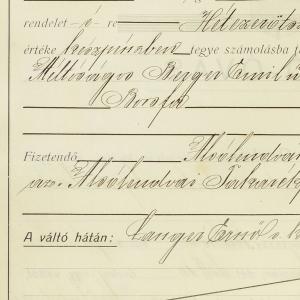 rendelet – é – re Hétezeröt
értéke készpénzben tegye számolásba
Méltóságos Berger Emil ú
Borsfa
Fizetendő Alsólendvá
az: Alsólendvai Takarék
A váltó hátán: Langer Ernő